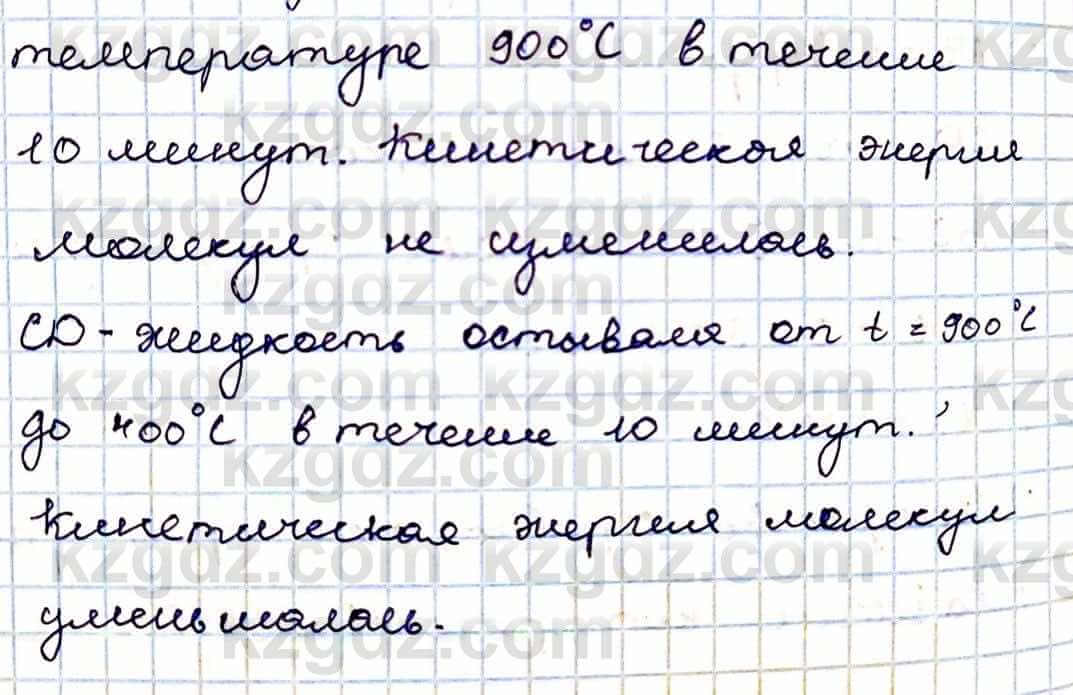 температуре 900°C в течение
10 минут. Кинетическая энергия
молекул не изменилась.
CD - жидкость остывала от t = 900°C
до 400°C в течение 10 минут.
Кинетическая энергия молекул
уменьшалась.
kzgdz.com